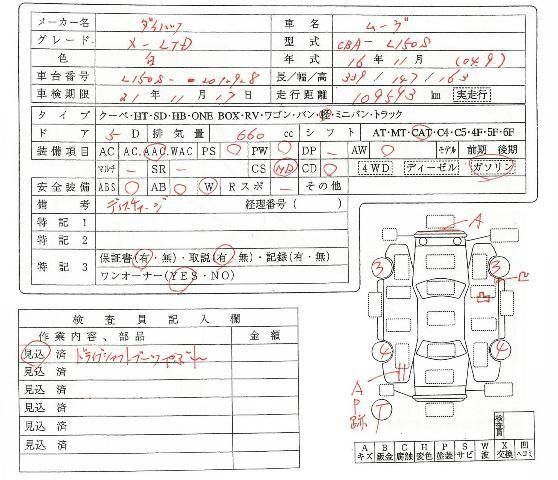 メーカー名 ダイハツ 車名 ムーヴ
グレード X-LTD 型式 CBA-L150S
色 白 年式 16年11月(049)
車台番号 L150S- 長/幅/高 339/147/163
車検期限 21年11月17日 走行距離 109593 km 実走行
タイプ クーペ・HT・SD・HB・ONE BOX・RV・ワゴン・バン・軽・ミニバン・トラック
ドア 5D 排気量 660cc シフト AT・MT・CAT・C4・C5・4F・5F・6F
装備項目 AC AC.AAC.WAC PS ○ PW ○ DP - AW ○ モデル 前期 後期
マルチ - SR - CS MD CD ○ 4WD ディーゼル ガソリン
安全装備 ABS ○ AB ○ W Rスポ - その他
備考 ディスチャージ 経理番号( )
特記1
特記2
特記3 保証書(有・無)・取説(有・無)・記録(有・無)
ワンオーナー(YES・NO)
検査員記入欄
作業内容、部品 金額
見込 済 ドライブシャフトブーツやぶれ
見込 済
見込 済
見込 済
見込 済
見込 済
A
3 3
凹
凹
4 4
A
P
跡
T
検査員
A キズ B 鈑金 C 腐蝕 H 変色 P 塗装 S サビ W 波 X 交換 凹 ヘコミ